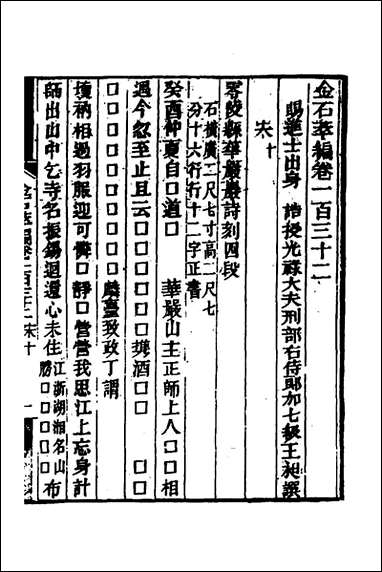 金石萃編卷一百三十二
賜進士出身 誥授光祿大夫刑部右侍郎加七級王昶譔
宋十
零陵縣華嚴巖詩刻四段
石橫廣二尺七寸高二尺七
分十六行行十二字正書
癸酉仲夏自□道□ 華嚴山主正師上人□□相
過今忽至止且云□□□□□□㳟酒□□ □□
□□□□□□□□□□麟臺致政丁謂
壞衲相過羽服迎可憐□靜□營營我思江上忘身計
師出山中乞寺名振錫迴還心未住江浙湖湘名山
勝□□□□□布
金石萃編卷一百三十二 宋十 一